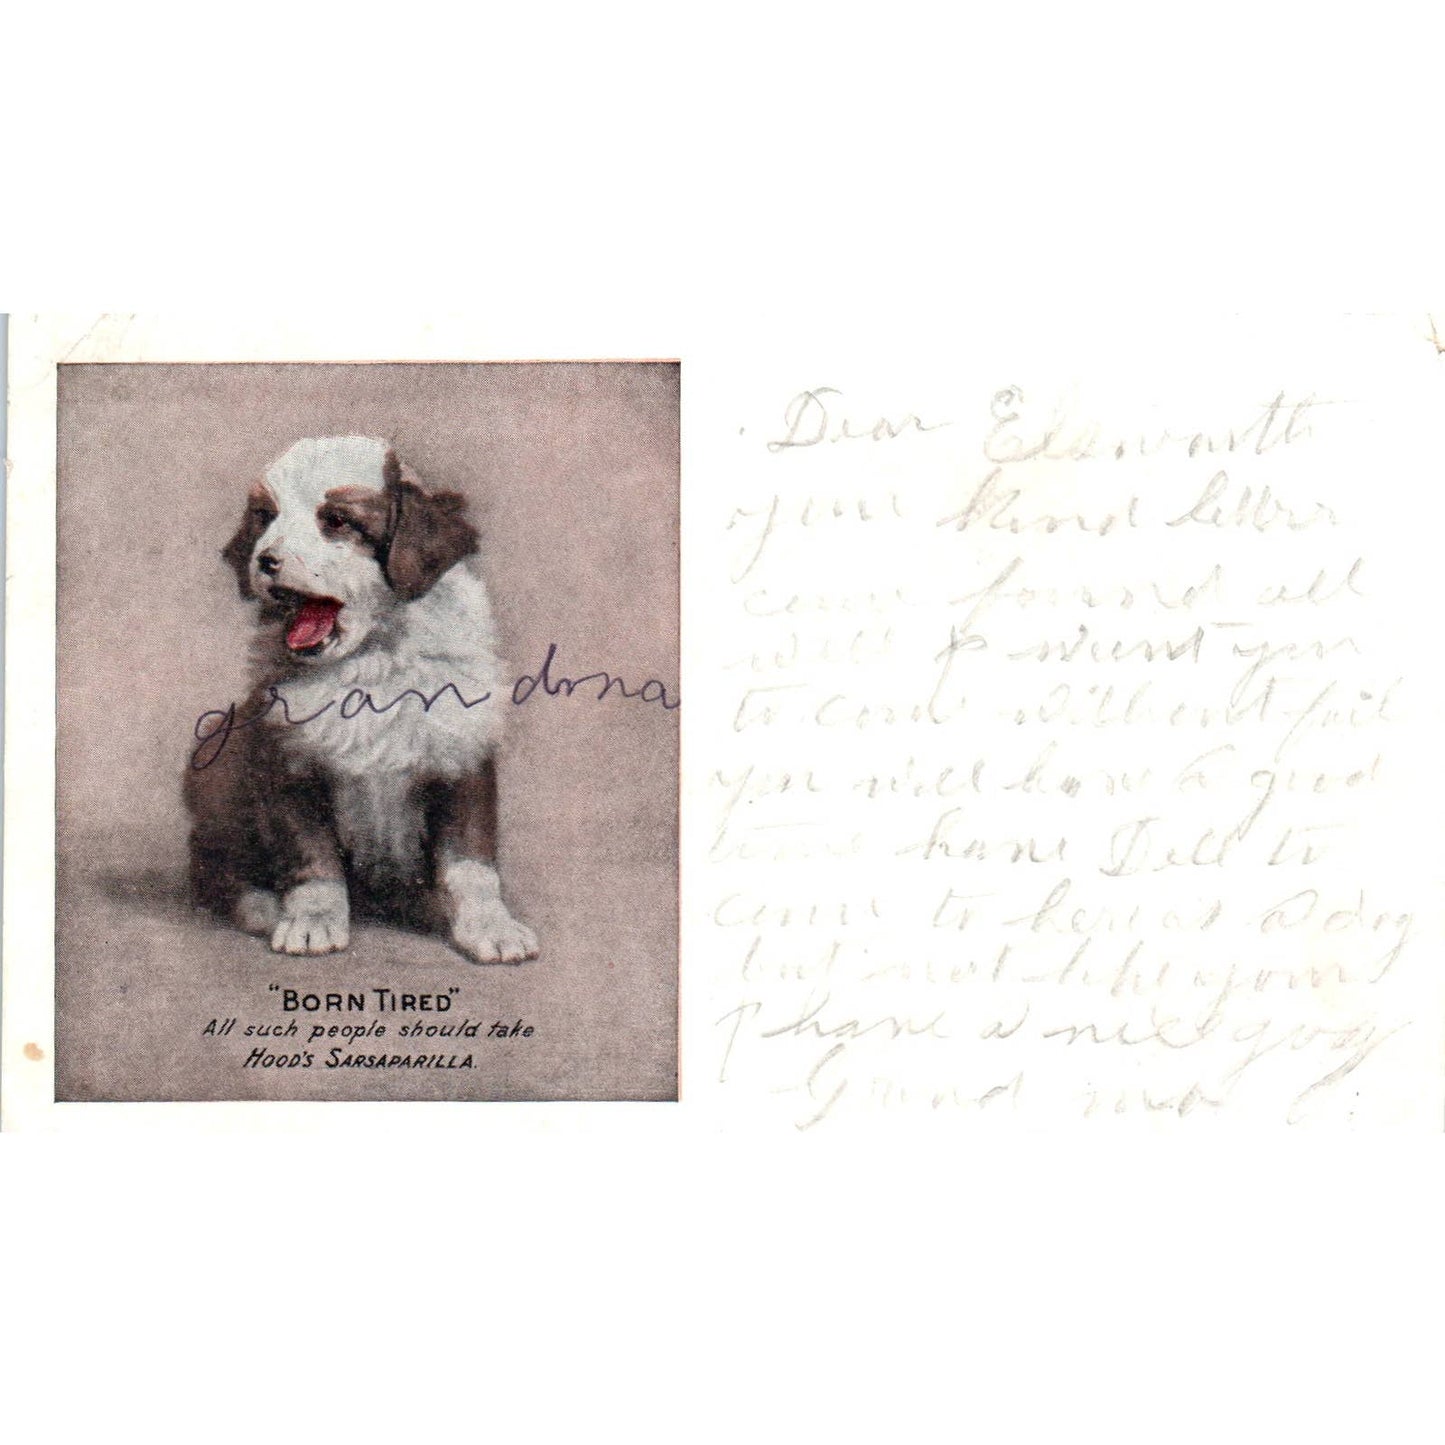 grandma
"BORN TIRED"
All such people should take
HOOD'S SARSAPARILLA.
Dear Elsworth
your kind letter
came found all
well I want you
to come without fail
you will have a good
time have Dell to
come to here is a dog
but not like yours
I have a nice
Grand ma